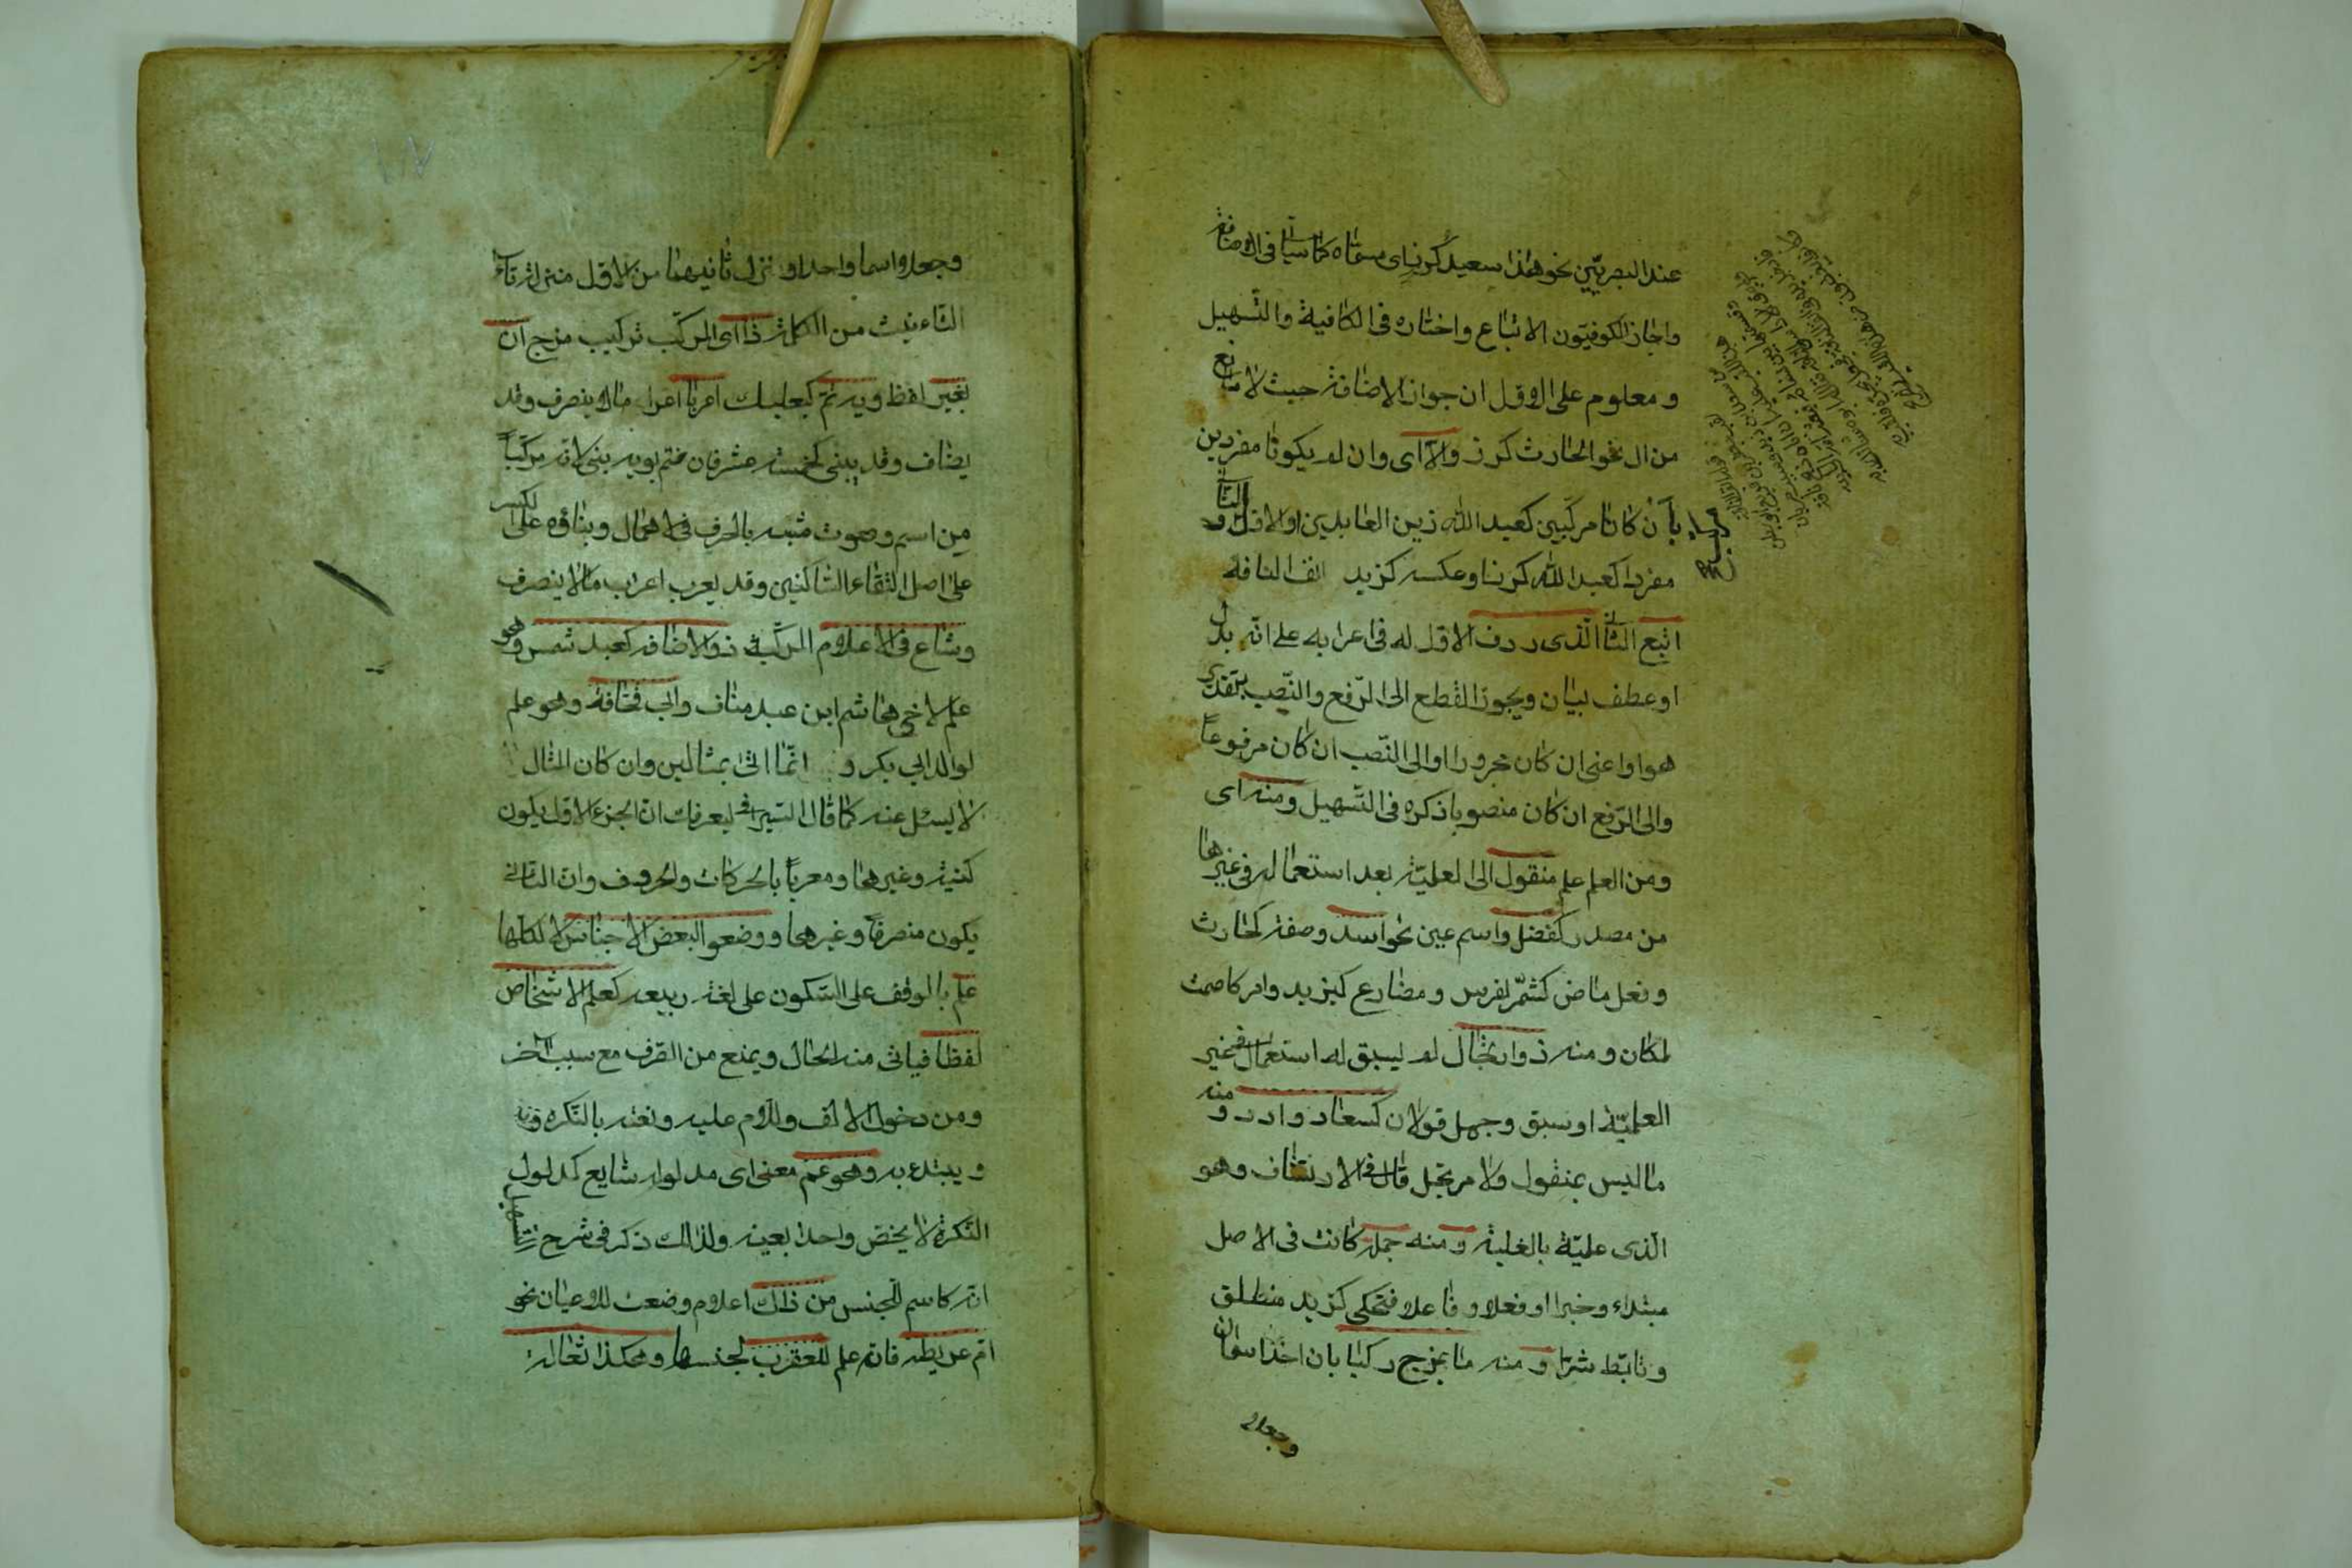 عند البصريّين نحو هذا سعيد كرز اى مسمّاه كما سياتى فى الاضافة
واجاز الكوفيّون الاتباع واختاره فى الكافية والتّسهيل
ومعلوم على الاوّل ان جواز الاضافة حيث لا مانع
من ال نحو الحارث كرز والّا اى وان لم يكونا مفردين
بأن كانا مركّبين كعبد الله زين العابدين او الاوّل و
مفردا كعبد الله كرز او عكسه كزيد انف الناقة
اتبع الثانى الّذى ردف الاوّل له فى اعرابه على انّه بدل
او عطف بيان ويجوز القطع الى الرّفع والنّصب بتقدير
هو او اعنى ان كان مجرورا والى النّصب ان كان مرفوعاً
والى الرّفع ان كان منصوبا ذكره فى التّسهيل ومنه اى
ومن العلم علم منقول الى العلميّة بعد استعماله فى غيرها
من مصدر كفضل واسم عين نحو اسد وصفة كحارث
وفعل ماض كشمّر لفرس ومضارع كيزيد وامر كاصمت
لمكان ومنه ذو ارتجال لم يسبق له استعمال فى غير
العلميّة او سبق وجهل قولان كسعاد وادد و منه
ما ليس بمنقول ولا مرتجل قال فى الارتشاف وهو
الّذى علميّة بالغلبة ومنه جملة كانت فى الاصل
مبتداء وخبرا او فعلا وفاعلا فتحكى كزيد منطلق
وتابّط شرّا ومنه ما بمزج ركبا بان اخذ اسمان
وجعلا
وجعلا اسما واحدا ونزل ثانيهما من الاوّل منزلة تاء
التّاءنيث من الكلمة ذا اى المركّب تركيب مزج ان
بغير لفظ ويه تمّ كبعلبك اعربا اعراب مالا ينصرف وقد
يضاف وقد يبنى كخمسة عشر فان ختم بويه بنى لانّه مركّباً
من اسم وصوت مشبه بالحرف فى الاهمال وبناؤه على الكسر
على اصل التقاء السّاكنين وقد يعرب اعراب مالا ينصرف
وشاع فى الاعلام المركّبة ذو الاضافة كعبد شمس وهو
علم لاخى هاشم ابن عبد مناف وابى قحافة وهو علم
لوالد ابى بكر و انّما اتى بمثالين وان كان المثال
لا يسئل عنه كما قال السّيرافى ليعرفك انّ الجزء الاوّل يكون
كنية وغيرها ومعرباً بالحركات والحروف وان الثانى
يكون منصرفاً وغيرها ووضعوا لبعض الاجناس لا لكلّها
علم بالوقف على السّكون على لغة ربيعه كعلم الاشخاص
لفظا فياتى منه الحال ويمنع من الصّرف مع سبب آخر
ومن دخول الالف واللّام عليه ونعته بالنّكره
ويبتدء به وهو عمّ معنى اى مدلوله شايع كمدلول
النّكرة لا يختصّ واحدا بعينه ولذلك ذكر فى شرح التسهيل
انّه كاسم للجنس من ذلك اعلام وضعت للاعيان نحو
امّ عريط فانّه علم للعقرب لجنسها وهكذا ثعالة